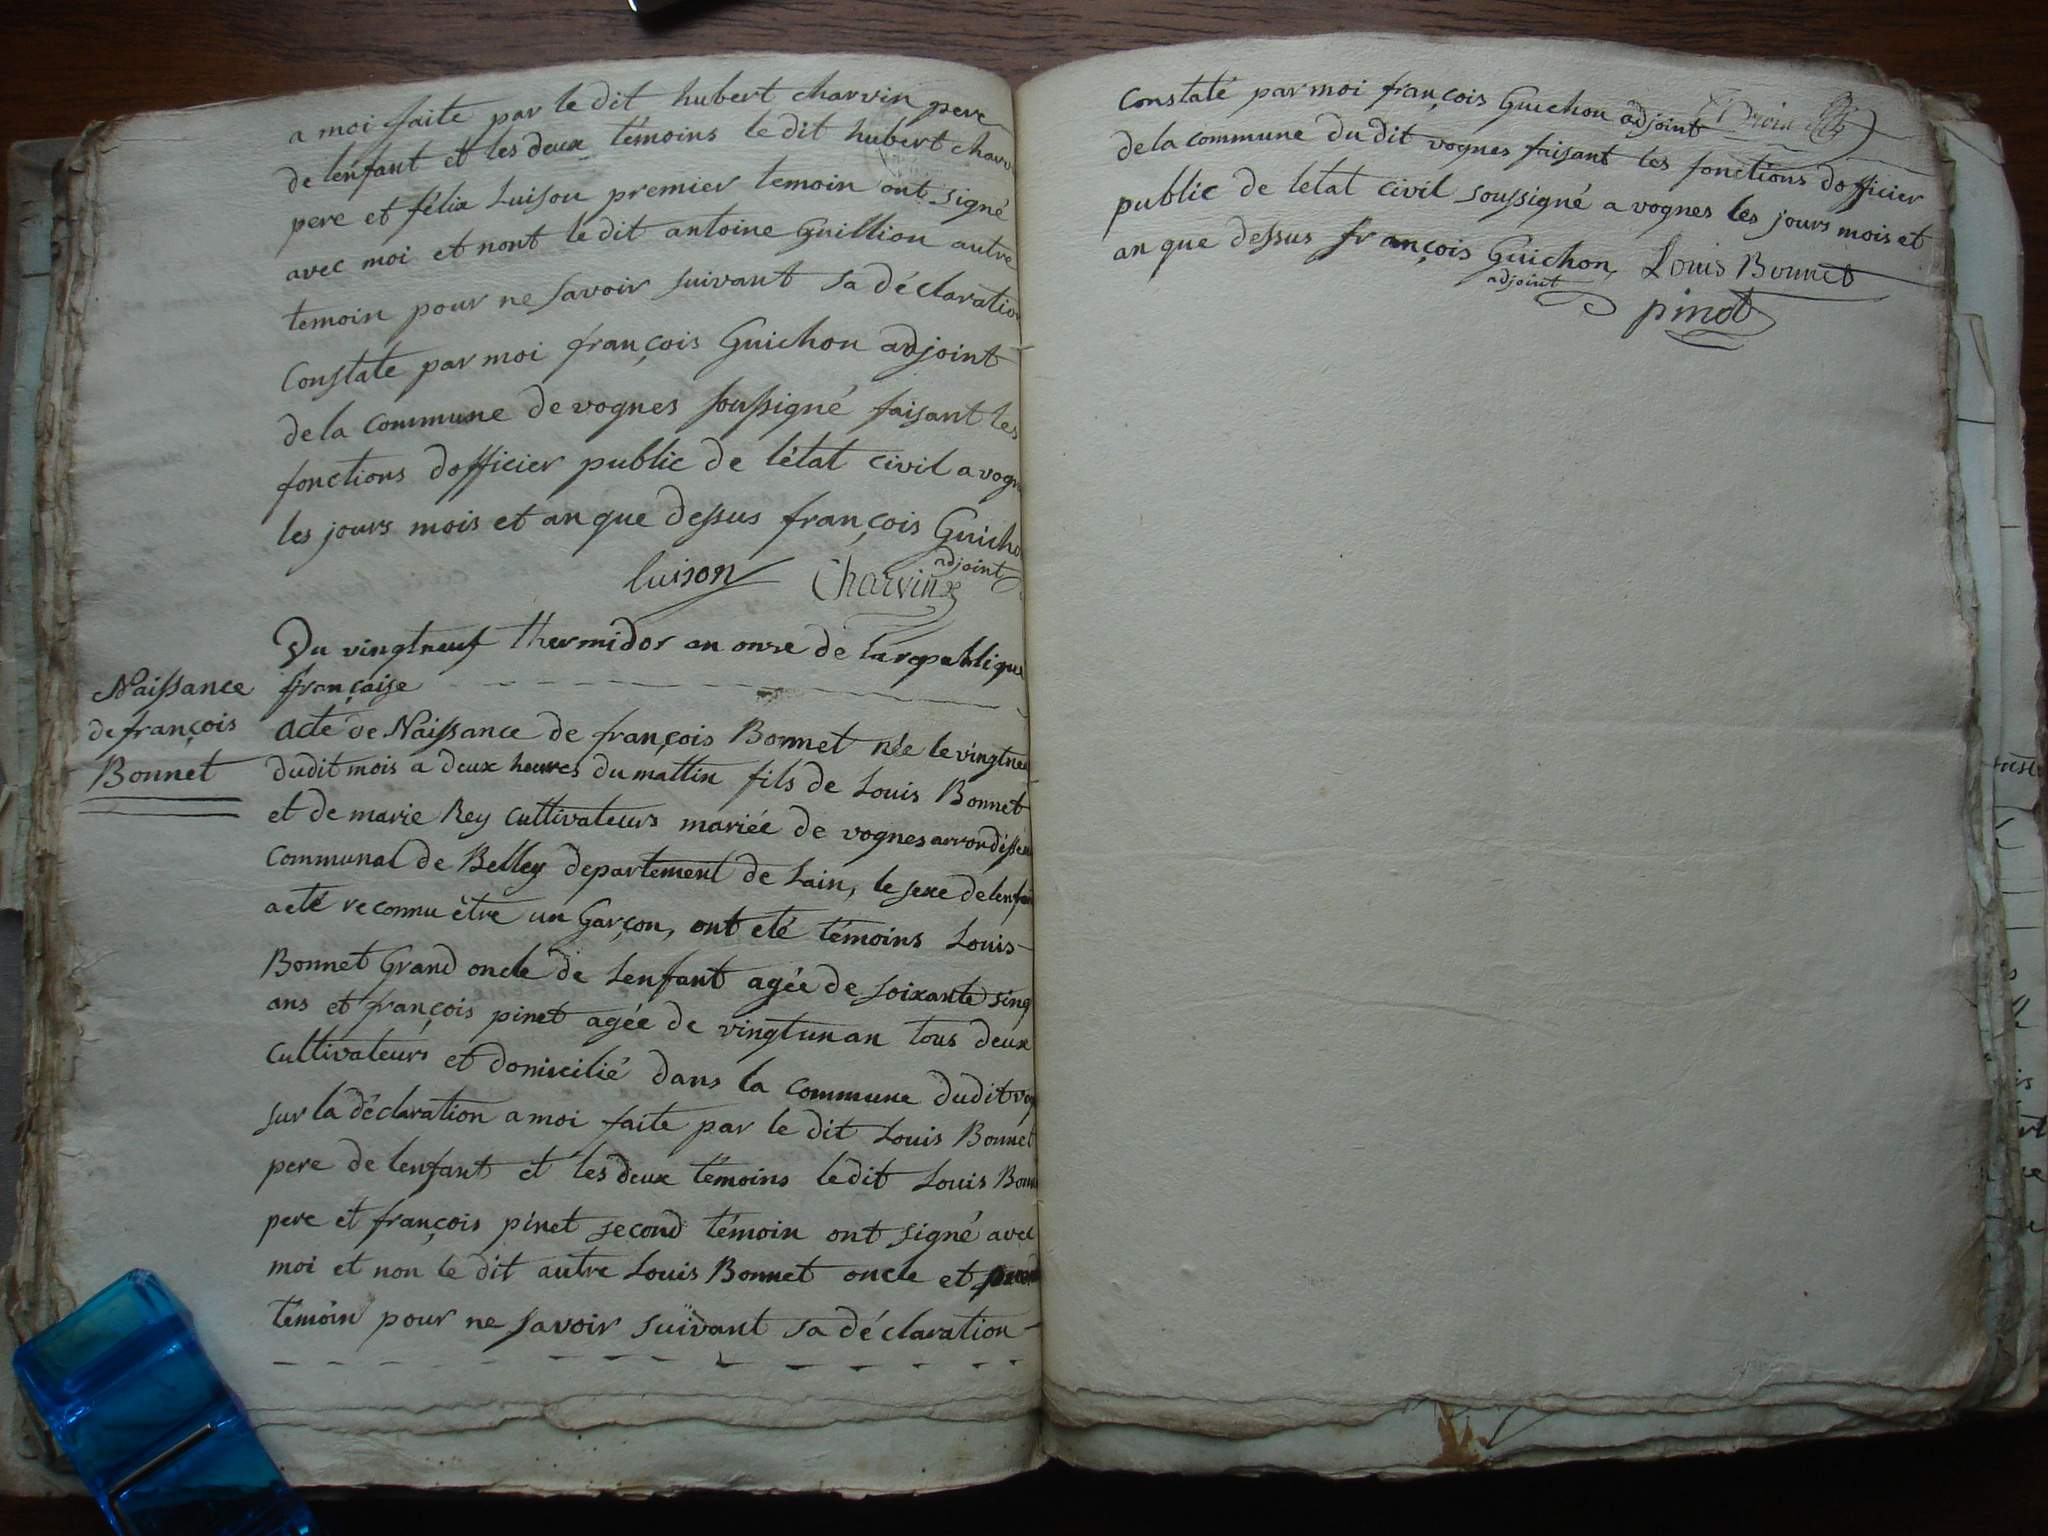 a moi faite par le dit hubert charvin pere
de lénfant et les deux témoins le dit hubert charv
pere et félix Luison premier temoin ont signé
avec moi et nont le dit antoine Guillion autre
temoin pour ne savoir suivant sa déclaration
Constate par moi françois Guichon adjoint
de la commune de vognes soussigné faisant les
fonctions dofficier public de létat civil a vogn
les jours mois et an que dessus françois Guicho
adjoint
luison Charvin
Du vingtneuf thermidor an onze de la republique
française
Naissance
de françois
Bonnet
acte de Naissance de françois Bonnet née le vingtneu
dudit mois a deux heures du mattin fils de Louis Bonnet
et de marie Rey cultivateurs mariée de vognes arrondissem
Communal de Belley departement de Lain, le sexe de lenfan
a eté reconnu être un Garçon, ont eté témoins Louis
Bonnet Grand oncle de Lenfant agée de soixante sinq
ans et françois pinet agée de vingtun an tous deux
Cultivateurs et domicilié dans la commune dudit vog
sur la déclaration a moi faite par le dit Louis Bonnet
pere de lenfant et les deux témoins le dit Louis Bonn
pere et françois pinet second témoin ont signé avec
moi et non le dit autre Louis Bonnet oncle et
témoin pour ne savoir suivant sa déclaration
Constaté par moi françois Guichon adjoint
de la commune du dit vognes faisant les fonctions dofficier
public de letat civil soussigné a vognes les jours mois et
an que dessus françois Guichon Louis Bonnet
adjoint
pinet